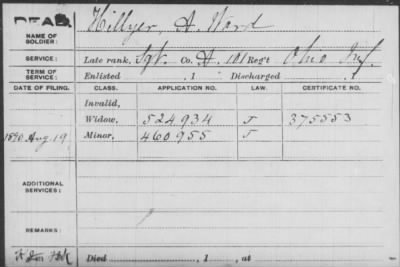 DEAD.
NAME OF SOLDIER: Hillyer, A. Ward
SERVICE: Late rank, Sgt. Co. A, 101 Reg't Ohio Inf.
TERM OF SERVICE: Enlisted , 1 Discharged , 1
DATE OF FILING. CLASS. APPLICATION NO. LAW. CERTIFICATE NO.
Invalid,
Widow, 524.934 J 375553
1890 Aug. 19 Minor, 460955 J
ADDITIONAL SERVICES:
REMARKS:
Died , 1 , at